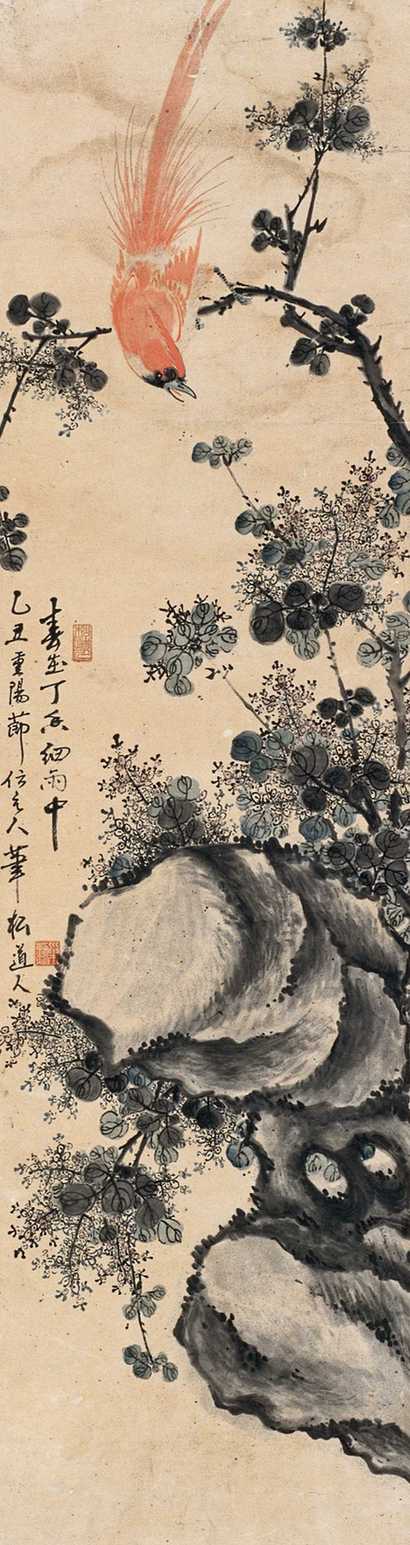 春在丁香細雨中
乙丑重陽節仿元人筆松道人